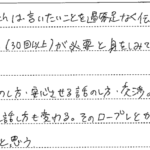 は言いたいことを過不足なく伝
(30回以上)が必要と身をしみて
し方・安心させる話の し方・交渉。
話し方も変わる。そのロープレとか
と思う